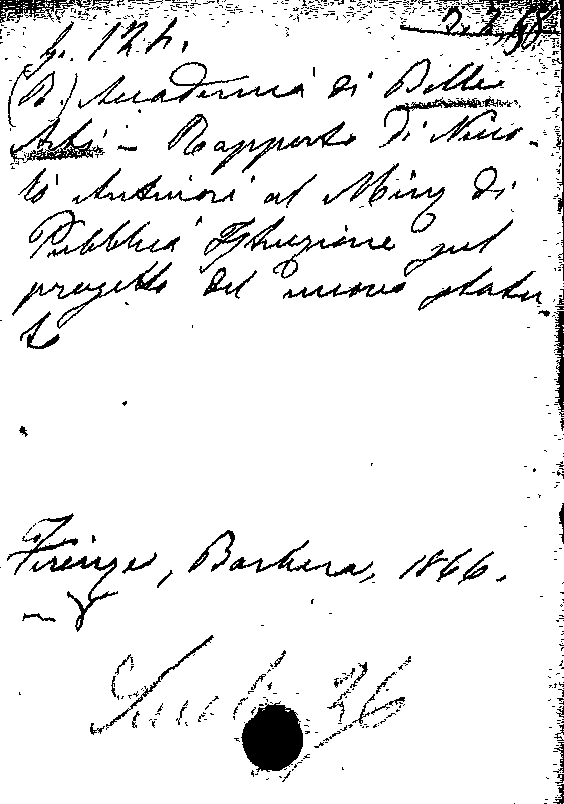 (R.) Accademia di Belle
Arti - Rapporto di Nico-
lò Antinori al Min. di
Pubblica Istruzione sul
progetto del nuovo statu-
to
Firenze, Barbera, 1866.
36